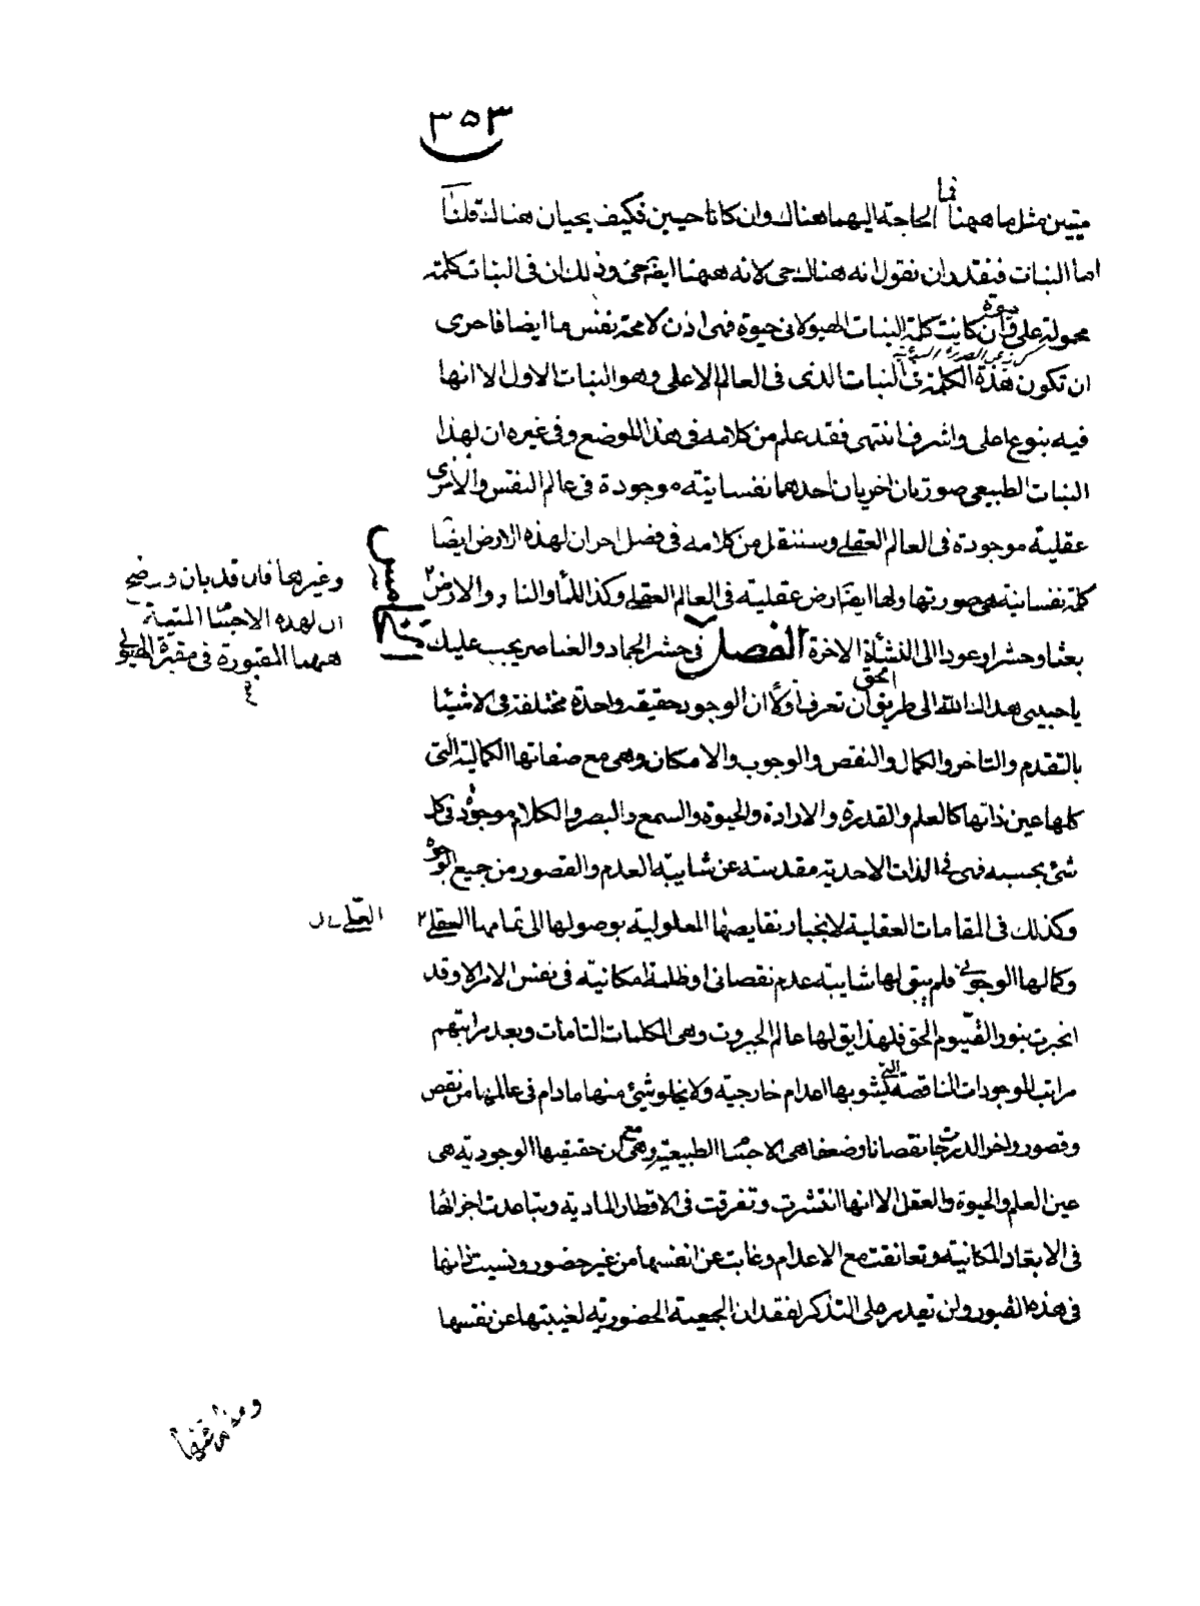 ٣٥٣
ميتين مثل ما ههنا فما الحاجة اليهما هناك وان كانا حيين فكيف يحييان هناك قلنا
اما النبات فنقدر ان نقول انه هناك حى لانه ههنا ايضا حى وذلك ان فى النبات كلمة
محمولة على حيوة وان كانت كلمة النبات الهيولانى حيوة فهى اذن لا محة نفس ما ايضا فاحرى
ان تكون هذه الكلمة فى النبات الذى فى العالم الاعلى وهو النبات الاول الا انها
فيه بنوع اعلى واشرف انتهى فقد علم من كلامه فى هذا الموضع وفى غيره ان لهذا
النبات الطبيعى صورتان اخريان احدهما نفسانية موجودة فى عالم النفس والاخرى
عقلية موجودة فى العالم العقلى وسننقل من كلامه فى فصل اخر ان لهذه الارض ايضا
كلمة نفسانية هى صورتها ولها ايضا ارض عقلية فى العالم العقلى وكذا الماء والنار والارض ٢
وغيرها فان قد بان وضح
ان لهذه الاجسا الميتة
ههنا المقبورة فى مقبرة الهيولى
بعثا وحشرا وعودا الى النشأة الاخرة الفصل الخامس فى حشر الجماد والعناصر يجب عليك
يا حبيبى هداك الله الى طريق الحق ان تعرف اولا ان الوجود حقيقة واحدة مختلفة فى الاشيا
بالتقدم والتاخر والكمال والنقص والوجوب والامكان وهى مع صفاتها الكمالية التى
كلها عين ذاتها كالعلم والقدرة والارادة والحيوة والسمع والبصر والكلام موجودة فى كل
شئ بحسبه فهى فى الذات الاحدية مقدسة عن شايبة العدم والقصور من جميع الوجوه
وكذلك فى المقامات العقلية لانجبار نقايصها المعلولية بوصولها الى تمامها العقلى ٢
العلى ل
وكمالها الوجوبى فلم يبق لها شايبة عدم نقصانى او ظلمة امكانية فى نفس الامر الا وقد
انجبرت بنور القيوم الحق فلهذا يق لها عالم الجبروت وهى الكلمات التامات وبعد مراتبهم
مراتب الموجودات الناقصة التى يشوبها اعدام خارجية ولا يخلو شئ منها ما دام فى عالمها من نقص
وقصور واخر الدرجات نقصانا وضعفا هى الاجسا الطبيعية وهى مع ان حقيقيها الوجودية هى
عين العلم والحيوة والعقل الا انها انتشرت وتفرقت فى الاقطار المادية وتباعدت اجزائها
فى الابعاد المكانية وتعانقت مع الاعدام وغابت عن انفسها من غير حضور ونسيت ذاتها
فى هذه القبور ولن تقدر على التذكر لفقدان الجمعية الحضورية لغيبتها عن نفسها